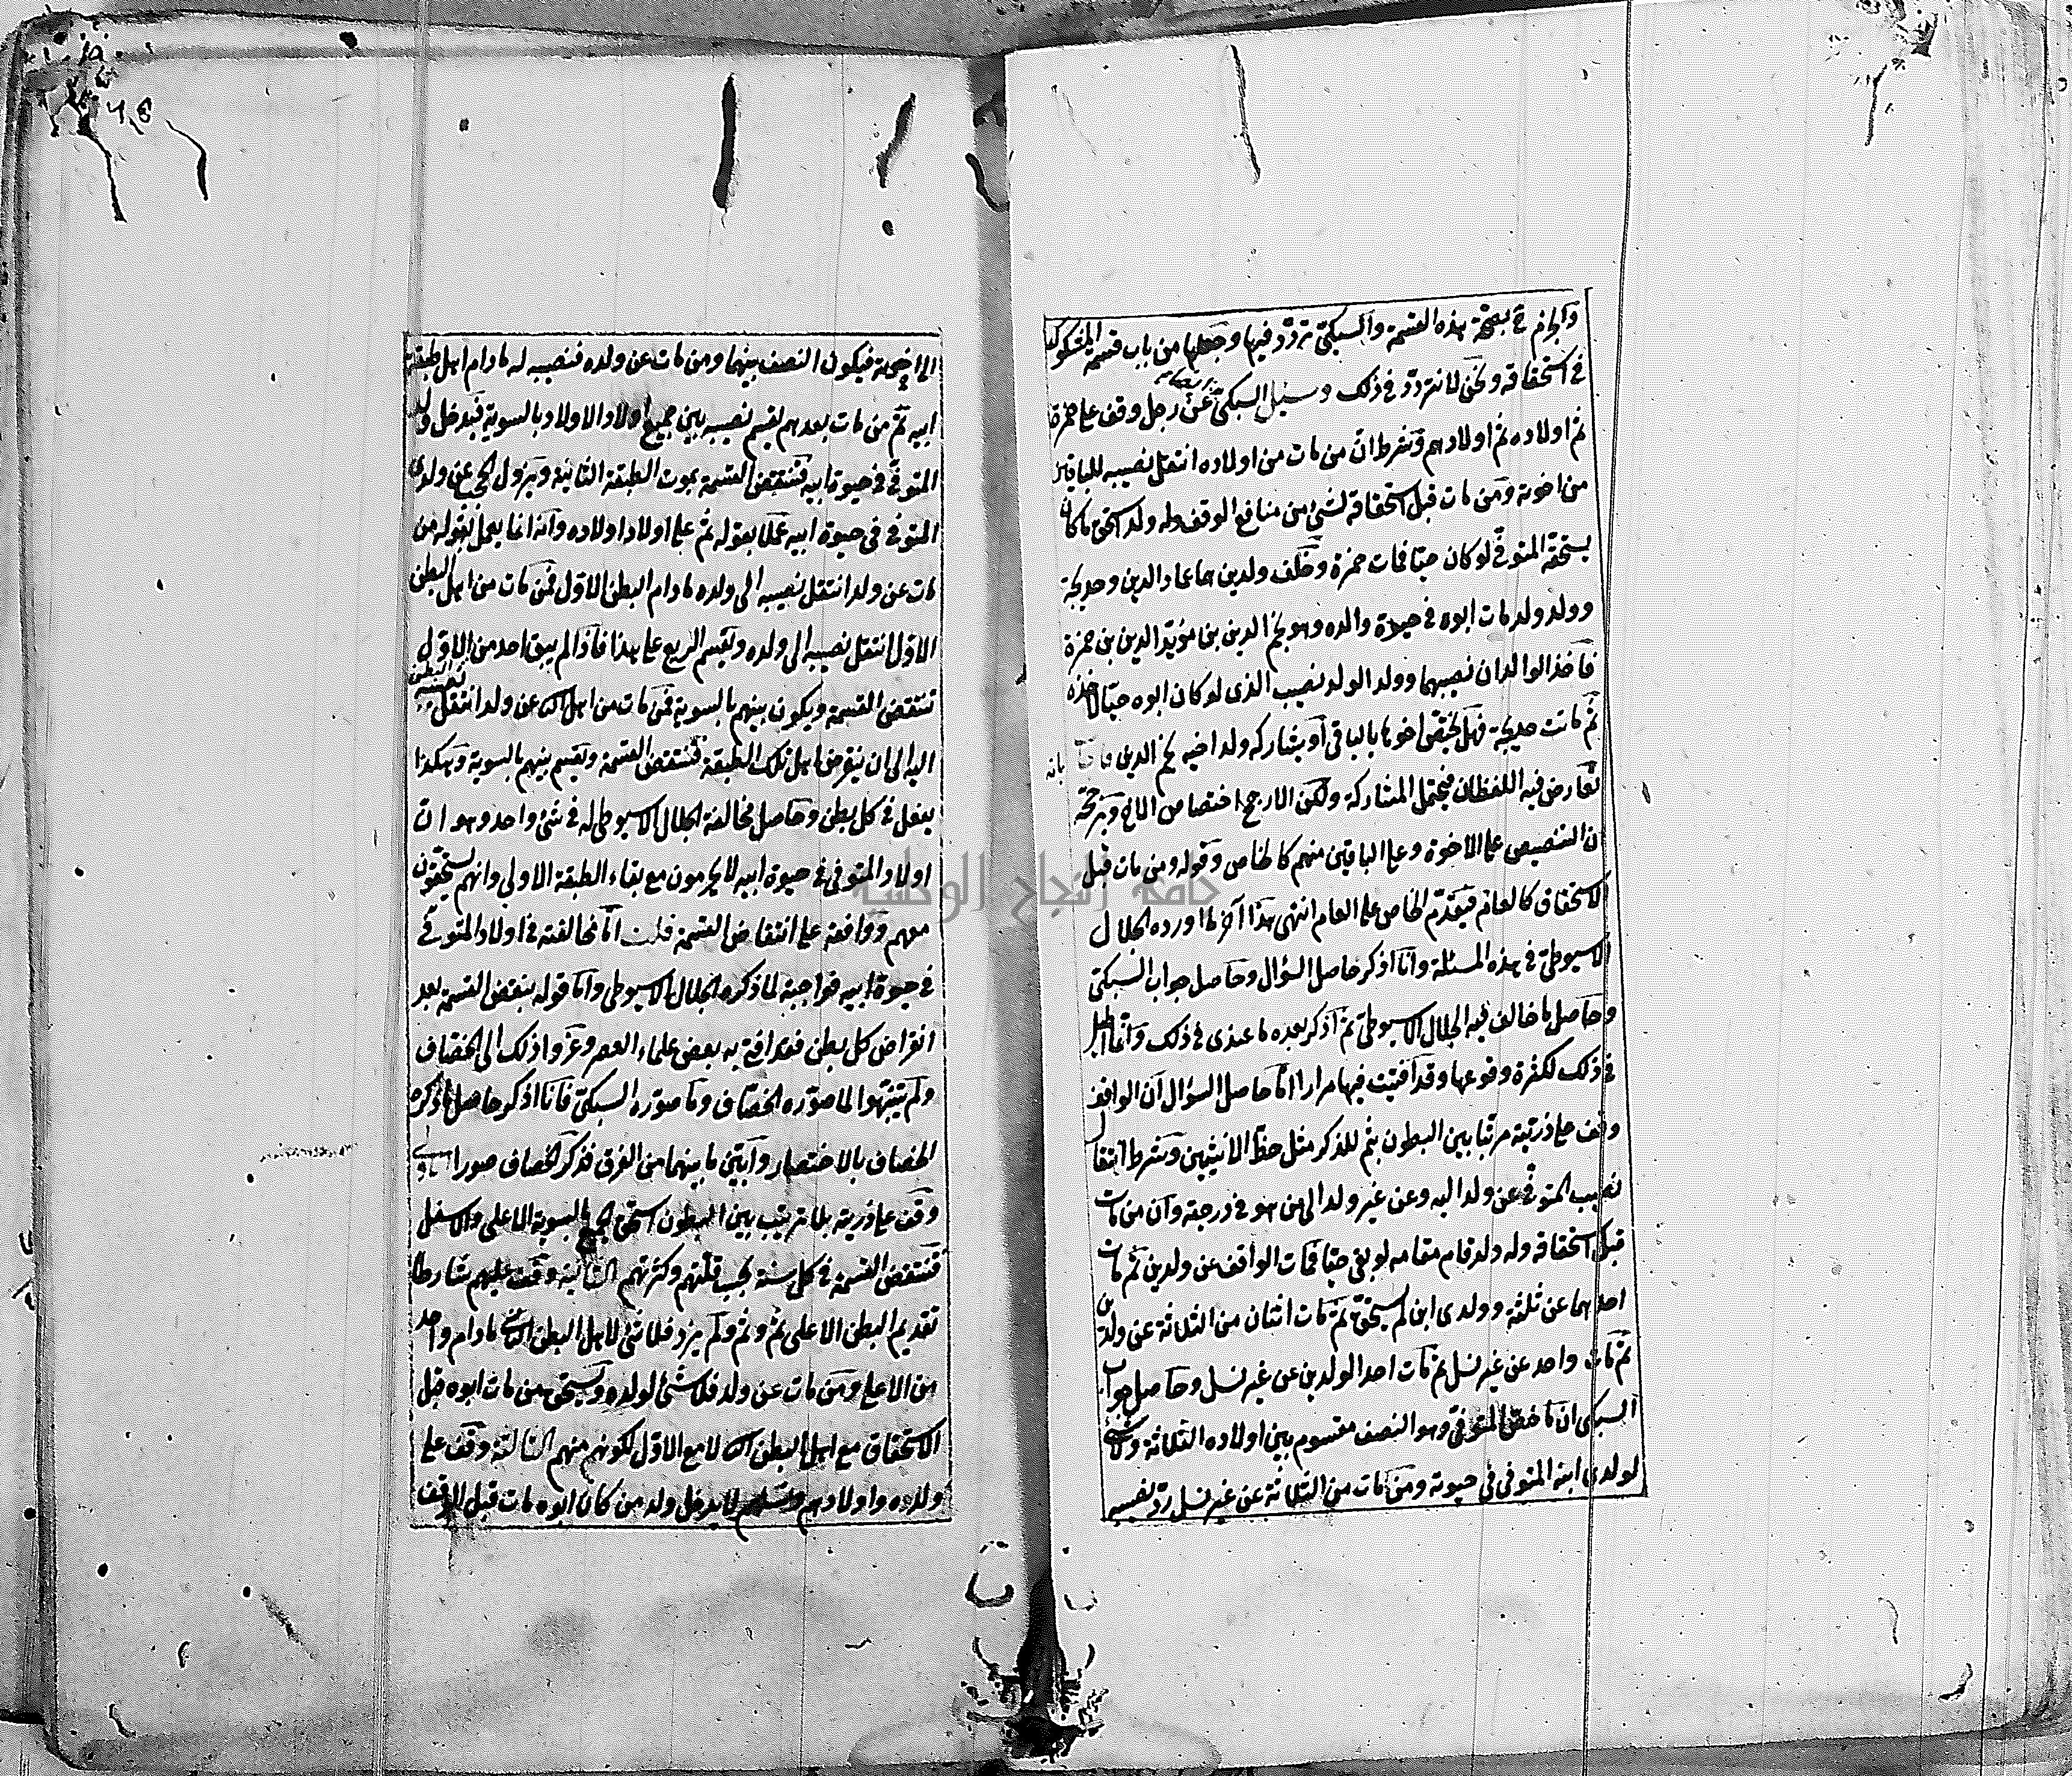 والجزم ح بصحة هذه القسمة والسبكي تردد فيها وجعلها من باب قسمة المشكوك
في استحقاقه ونحن لا نتردد في ذلك وسئل السبكي عن رجل وقف على حمزة
ثم اولاده ثم اولادهم وشرط ان من مات من اولاده انتقل نصيبه للباقين
من اخوته ومن مات قبل استحقاقه لشئ من منافع الوقف وله ولد استحق ما كان
يستحقه المتوفى لو كان حيا فمات حمزة وخلف ولدين هما عماد الدين وخديجة
وولد ولد مات ابوه في حيوة والده وهو نجم الدين بن مؤيد الدين بن حمزة
فاخذ الوالدان نصيبهما وولد الولد نصيب الذى لو كان ابوه حيا لاخذه
ثم ماتت خديجة فهل يختص اخوها بالباقي أو يشاركه ولد اخيه نجم الدين فاجاب بانه
تعارض فيه اللفظان فيحتمل المشاركة ولكن الارجح اختصاص الاخ ويرجحه
ان التنصيص على الاخوة وعلى الباقين منهم كالخاص وقوله ومن مات قبل
الاستحقاق كالعام فيقدم الخاص على العام انتهى هذا آخر ما اورده الجلال
الاسيوطي في هذه المسئلة وانا اذكر حاصل السؤال وحاصل جواب السبكي
وحاصل ما خالف فيه الجلال الاسيوطي ثم اذكر بعده ما عندى في ذلك وانما اطيل
في ذلك لكثرة وقوعها وقد افتيت فيها مرارا اما حاصل السؤال ان الواقف
وقف على ذريته مرتبا بين البطون بثم للذكر مثل حظ الانثيين وشرط انتقال
نصيب المتوفى عن ولد اليه وعن غير ولد الى من هو في درجته وان من مات
قبل استحقاقه وله ولد قام مقامه لو بقي حيا فمات الواقف عن ولدين ثم مات
احدهما عن ثلثة وولدى ابن لم يستحق ثم مات اثنان من الثلاثة عن ولدين
ثم مات واحد عن غير نسل ثم مات احد الولدين عن غير نسل وحاصل جواب
السبكي ان ما خص المتوفى وهو النصف مقسوم بين اولاده الثلاثة ولا شئ
لولدى ابنه المتوفى في حيوته ومن مات من الثلاثة عن غير نسل رد نصيبه
الى اخوته فيكون النصف بينهما ومن مات عن ولده فنصيبه له ما دام اهل طبقة
ابيه ثم من مات بعدهم يقسم نصيبه بين جميع اولاد الاولاد بالسوية فيدخل ولد
المتوفى في حيوة ابيه فتنتقض القسمة بموت الطبقة الثانية ويزول الحجب عن ولدى
المتوفى في حيوة ابيه عملا بقوله ثم على اولاد اولاده وانه انما يعمل بقوله من
مات عن ولد انتقل نصيبه الى ولده ما دام البطن الاول فمن مات من اهل البطن
الاول انتقل نصيبه الى ولده ويقسم الريع على هذا فاذا لم يبق احد من البطن الاول
تنتقض القسمة ويكون بينهم بالسوية فمن مات من اهل الثاني عن ولد انتقل نصيبه
اليه الى ان ينقرض اهل تلك الطبقة فتنتقض القسمة ويقسم بينهم بالسوية وهكذا
يفعل في كل بطن وحاصل مخالفة الجلال الاسيوطي له في شئ واحد وهو ان
اولاد المتوفى في حيوة ابيه لا يحرمون مع بقاء الطبقة الاولى وانهم يستحقون
معهم ووافقه على انتقاض القسمة قلت اما مخالفته في اولاد المتوفى
في حيوة ابيه فواجبة لما ذكره الجلال الاسيوطي واما قوله بنقض القسمة بعد
انقراض كل بطن فقد افتى به بعض علماء العصر وعزوا ذلك الى الخصاف
ولم يتنبهوا لما صوره الخصاف وما صوره السبكي فانا اذكر حاصل ما ذكره
الخصاف بالاختصار وابين ما بينهما من الفرق فذكر الخصاف صورا الاولى
وقف على ذريته بلا ترتيب بين البطون استحق الجميع بالسوية الاعلى والاسفل
فتنتقض القسمة في كل سنة بحسب قلتهم وكثرتهم الثانية وقف عليهم شارطا
تقديم البطن الاعلى ثم وثم ولم يزد فلا شئ لاهل البطن الثاني ما دام واحد
من الاعلى ومن مات عن ولد فلا شئ لولده ويستحق من مات ابوه قبل
الاستحقاق مع اهل البطن الثاني لا مع الاول لكونهم منهم الثالثة وقف على
ولده واولادهم ونسلهم لا يدخل ولد من كان ابوه مات قبل الوقف